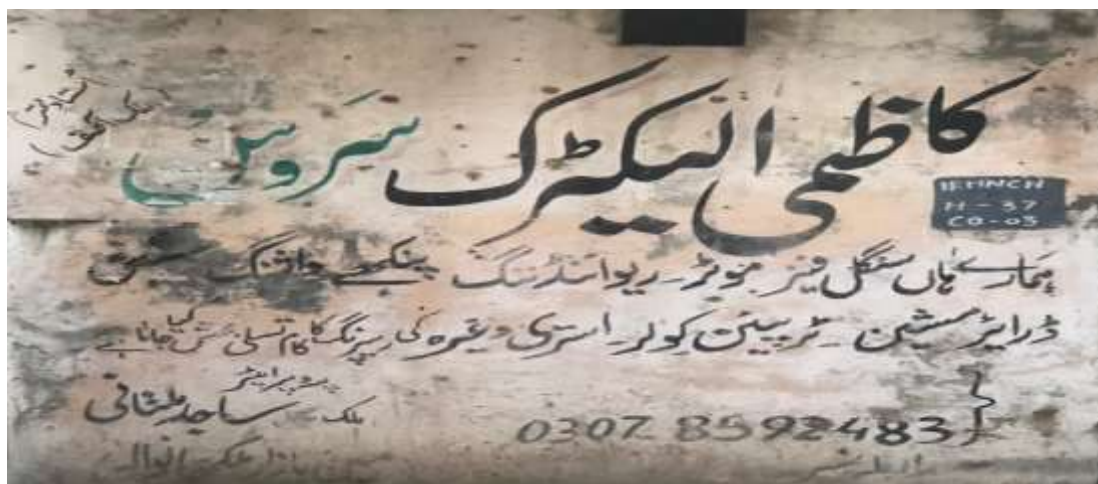 کاظمی الیکٹرک سروس
HMNCN
H-37
CO-03
ہمارے ہاں سنگل فیز موٹر۔ ریوائنڈننگ پنکھے واشنگ مشین
ڈرایئر مشین۔ ٹربیئن کولر۔ استری وغیرہ کی رپیرنگ کا کام تسلی بخش کیا جاتا ہے
پروپرائٹر
ملک ساجد ملتانی
0307 8592483
رابطہ نمبر